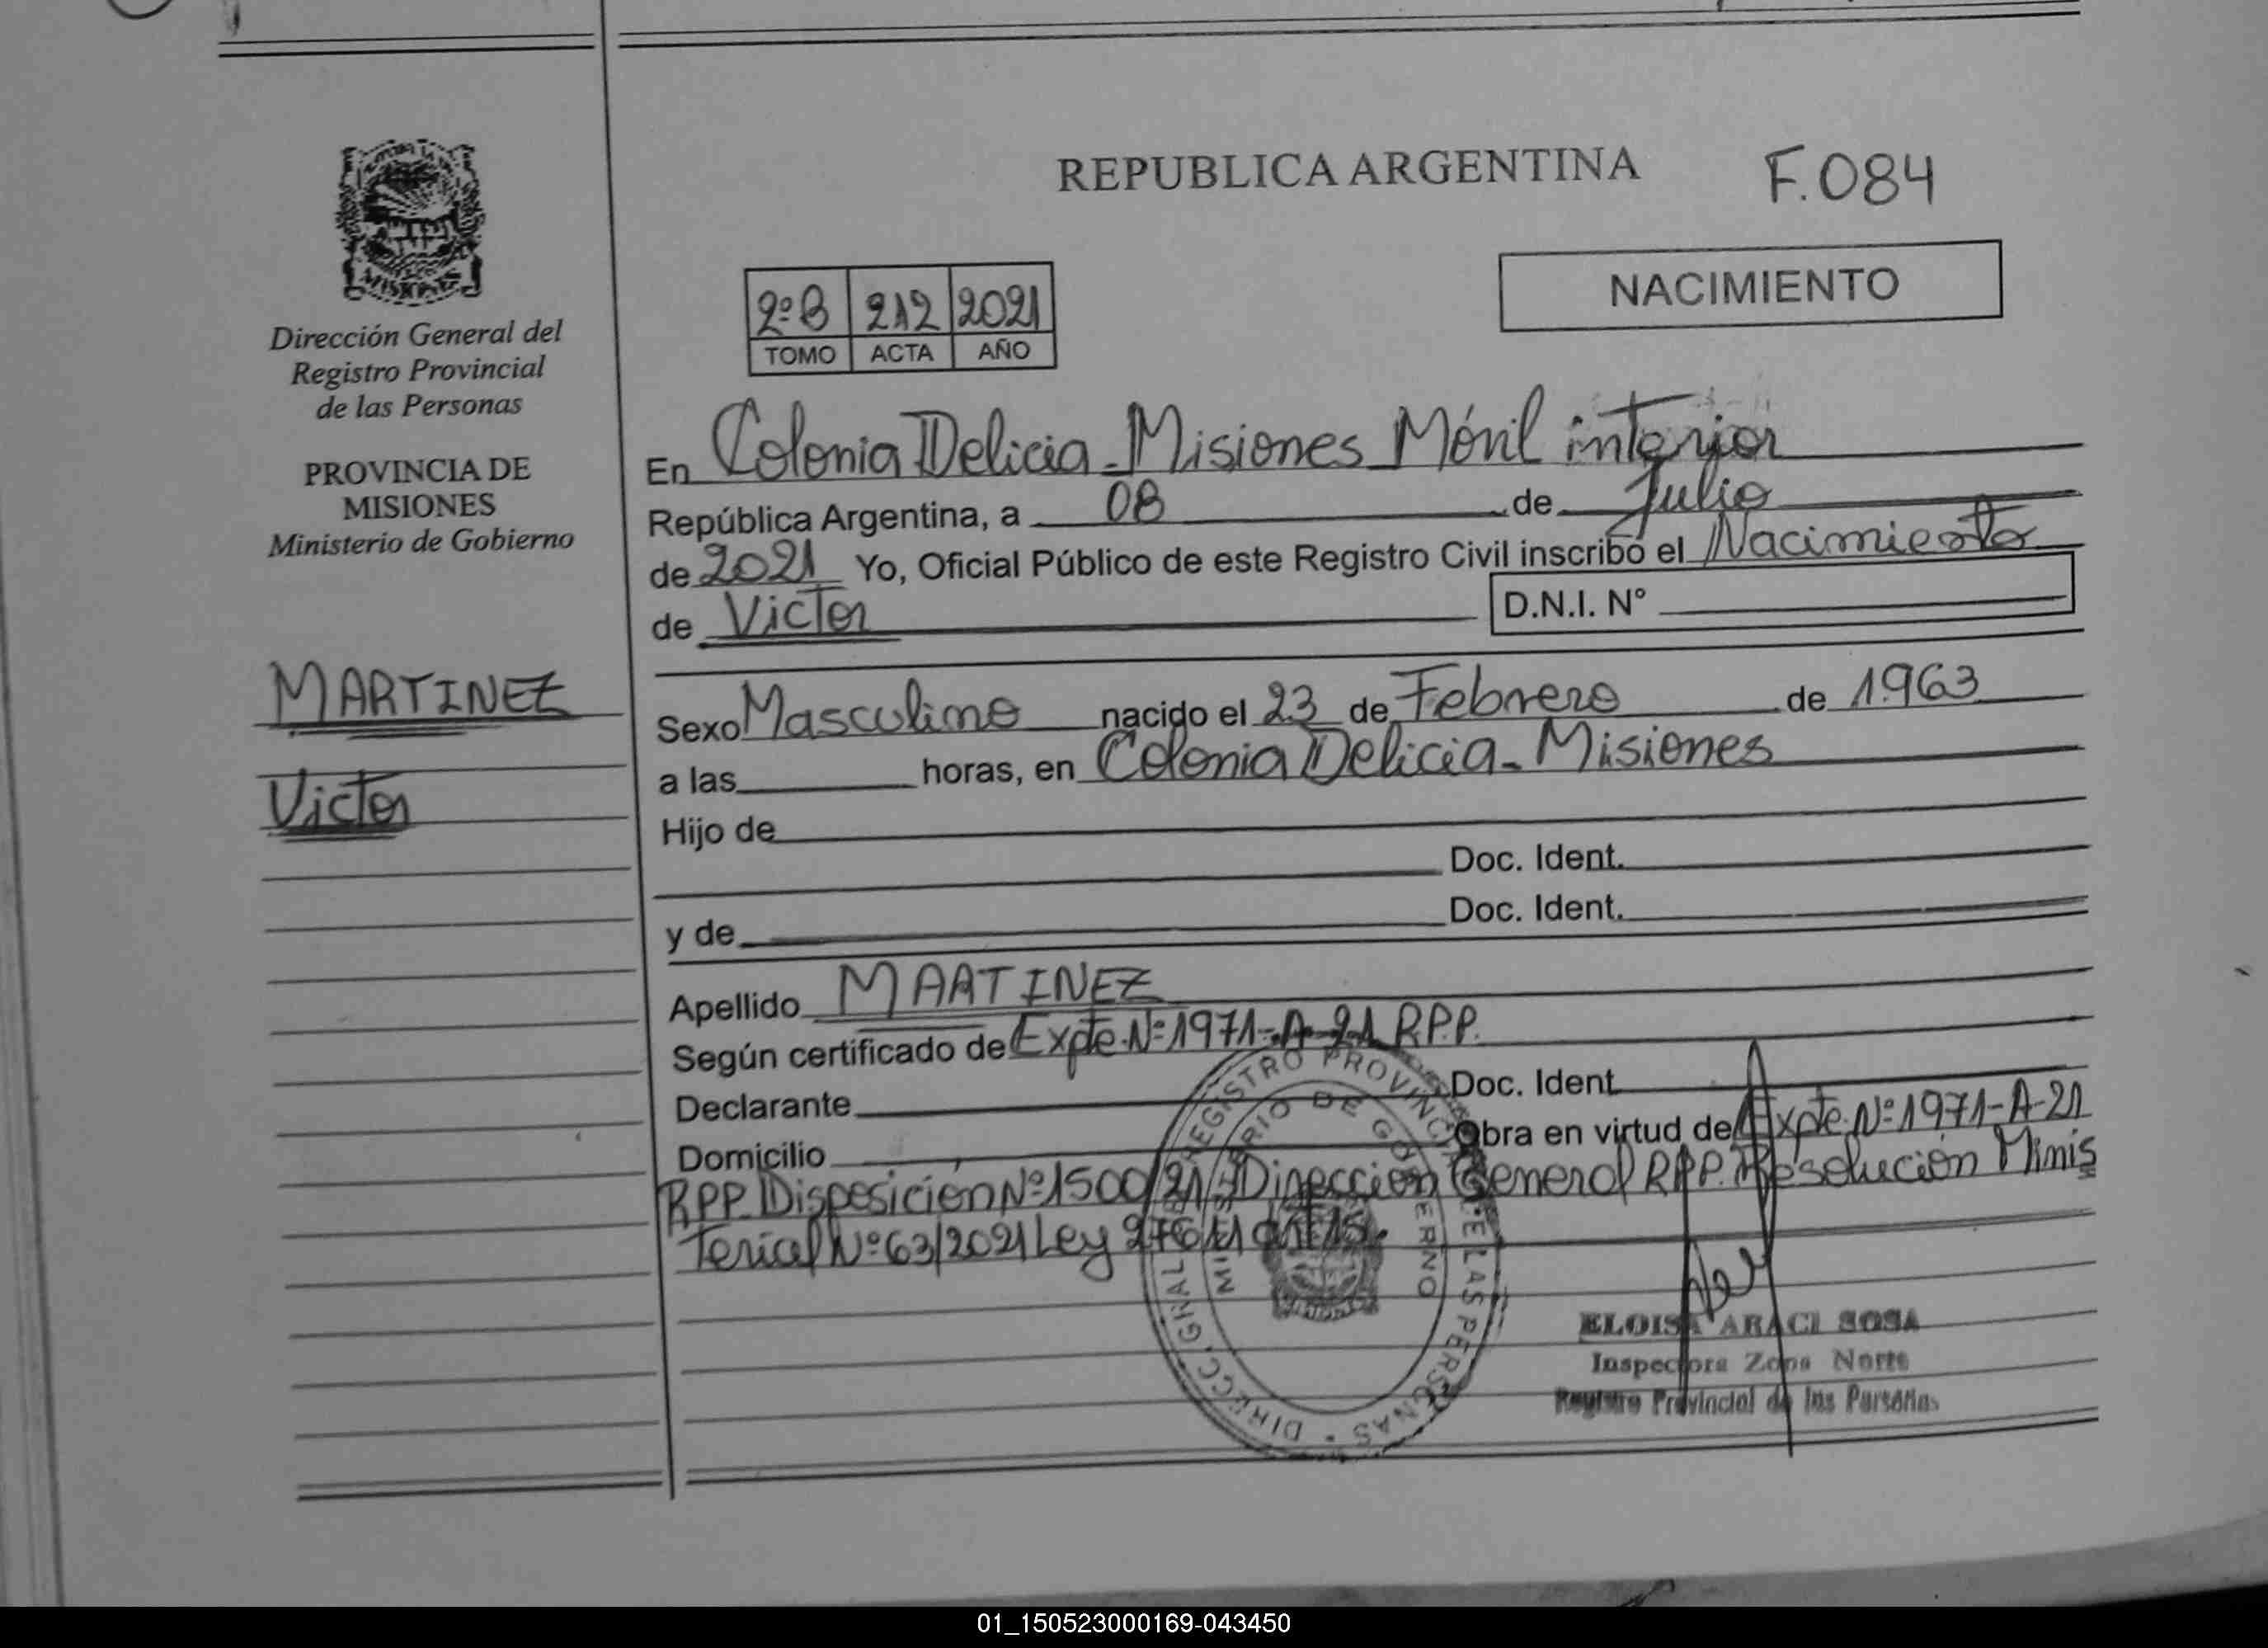 REPUBLICA ARGENTINA
F.084
NACIMIENTO
2º B 212 2021
TOMO ACTA AÑO
Dirección General del
Registro Provincial
de las Personas
PROVINCIA DE
MISIONES
Ministerio de Gobierno
MARTINEZ
Victor
En Colonia Delicia - Misiones Móvil interior
República Argentina, a 08 de Julio
de 2021 Yo, Oficial Público de este Registro Civil inscribo el Nacimiento
de Victor D.N.I. Nº
Sexo Masculino nacido el 23 de Febrero de 1963
a las horas, en Colonia Delicia - Misiones
Hijo de
Doc. Ident.
y de Doc. Ident.
Apellido MARTINEZ
Según certificado de Expte. Nº 1971-A-21 R.P.P.
Declarante Doc. Ident.
Domicilio Obra en virtud de Expte. Nº 1971-A-21
RPP. Disposición Nº 1500/21 Dirección General RPP. Resolución Minis
terial Nº 63/2021 Ley 27611 art 15.
DIRECC. GRAL. REGISTRO PROVINCIAL DE LAS PERSONAS
MINISTERIO DE GOBIERNO
ELOISA ARACI SOSA
Inspectora Zona Norte
Registro Provincial de las Personas
01_150523000169-043450